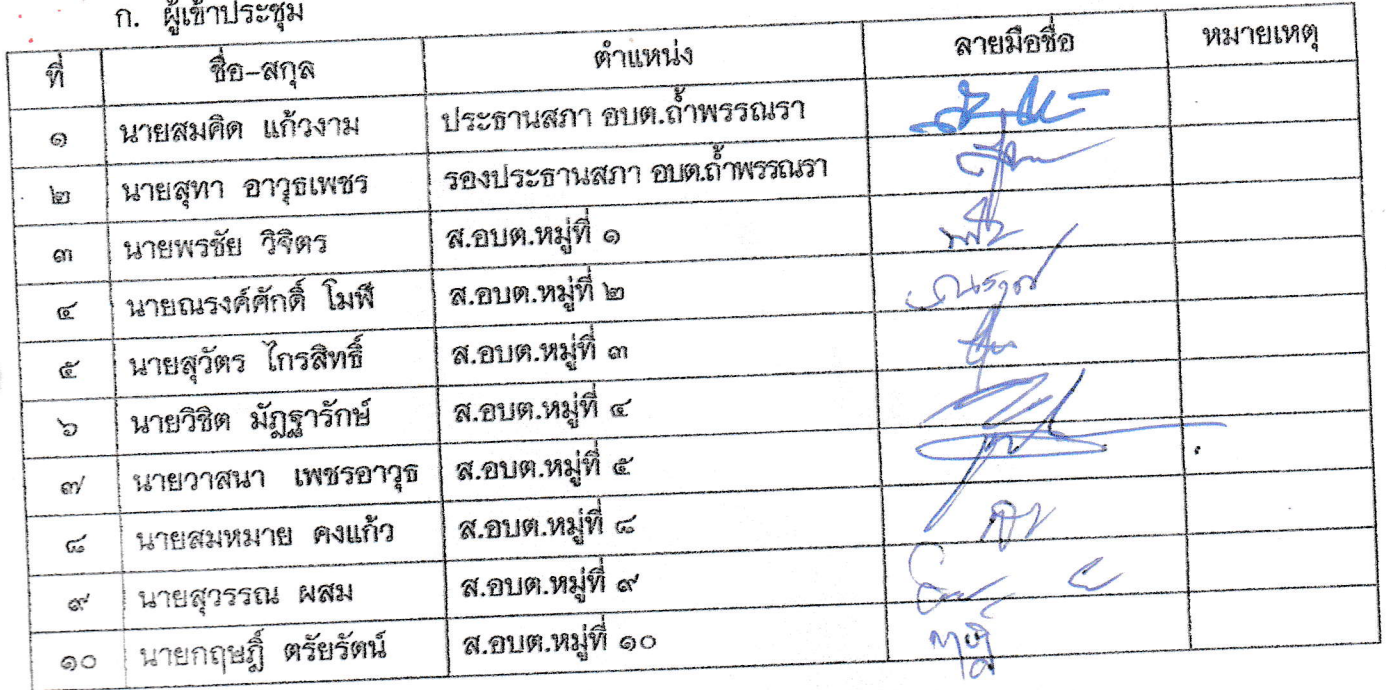 ก. ผู้เข้าประชุม
ที่ ชื่อ-สกุล ตำแหน่ง ลายมือชื่อ หมายเหตุ
๑ นายสมคิด แก้วงาม ประธานสภา อบต.ถ้ำพรรณรา
๒ นายสุทา อาวุธเพชร รองประธานสภา อบต.ถ้ำพรรณรา
๓ นายพรชัย วิจิตร ส.อบต.หมู่ที่ ๑
๔ นายณรงค์ศักดิ์ โมฬี ส.อบต.หมู่ที่ ๒
๕ นายสุวัตร ไกรสิทธิ์ ส.อบต.หมู่ที่ ๓
๖ นายวิชิต มัฎฐารักษ์ ส.อบต.หมู่ที่ ๔
๗ นายวาสนา เพชรอาวุธ ส.อบต.หมู่ที่ ๕
๘ นายสมหมาย คงแก้ว ส.อบต.หมู่ที่ ๘
๙ นายสุวรรณ ผสม ส.อบต.หมู่ที่ ๙
๑๐ นายกฤษฎิ์ ตรัยรัตน์ ส.อบต.หมู่ที่ ๑๐